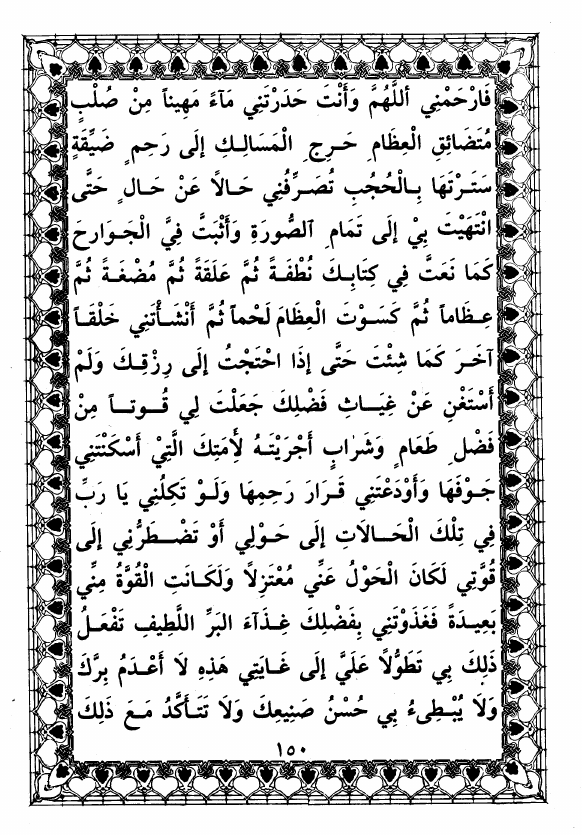 فَارْحَمْنِي أَللَّهُمَّ وَأَنْتَ حَدَرْتَنِي مَآءً مَهِيناً مِنْ صُلْبٍ
مُتَضَائِقِ الْعِظَامِ حَرِجِ الْمَسَالِكِ إِلَى رَحِمٍ ضَيِّقَةٍ
سَتَرْتَهَا بِالْحُجُبِ تُصَرِّفُنِي حَالاً عَنْ حَالٍ حَتَّى
انْتَهَيْتَ بِيْ إِلَى تَمَامِ الصُّورَةِ وَأَثْبَتَّ فِيَّ الْجَوَارِحَ
كَمَا نَعَتَّ فِي كِتَابِكَ نُطْفَةً ثُمَّ عَلَقَةً ثُمَّ مُضْغَةً ثُمَّ
عِظَاماً ثُمَّ كَسَوْتَ الْعِظَامَ لَحْماً ثُمَّ أَنْشَأْتَنِي خَلْقاً
آخَرَ كَمَا شِئْتَ حَتَّى إِذَا احْتَجْتُ إِلَى رِزْقِكَ وَلَمْ
أَسْتَغْنِ عَنْ غِيَاثِ فَضْلِكَ جَعَلْتَ لِي قُوتاً مِنْ
فَضْلِ طَعَامٍ وَشَرٰابٍ أَجْرَيْتَهُ لِأَمَتِكَ الَّتِيْ أَسْكَنْتَنِي
جَوْفَهَا وَأَوْدَعْتَنِي قَرَارَ رَحِمِهَا وَلَوْ تَكِلُنِي يَا رَبِّ
فِي تِلْكَ الْحَالَاتِ إِلَى حَوْلِي أَوْ تَضْطَرُّنِي إِلَى
قُوَّتِي لَكَانَ الْحَوْلُ عَنِّي مُعْتَزِلاً وَلَكَانَتِ الْقُوَّةُ مِنِّي
بَعِيدَةً فَغَذَوْتَنِي بِفَضْلِكَ غِذَآءَ البَرِّ اللَّطِيفِ تَفْعَلُ
ذٰلِكَ بِي تَطَوُّلاً عَلَيَّ إِلَى غَايَتِي هَذِهِ لَا أَعْدَمُ بِرَّكَ
وَلَا يُبْطِىءُ بِي حُسْنُ صَنِيعِكَ وَلَا تَتَأَكَّدُ مَعَ ذَلِكَ
١٥٠